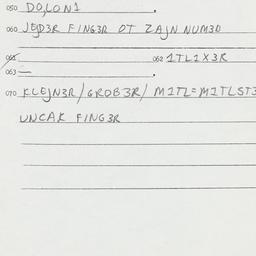 050 DO,LON1
060 JEJD3R FING3R OT ZAJN NUM3D
062 1TL1X3R
063 —
070 KLEJN3R/GROB3R/ M1TL=M1TLST3
UNCAR FING3R